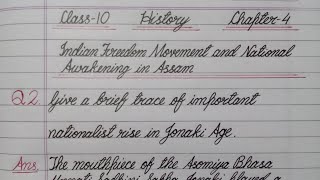 Class-10 History Chapter-4
Indian Freedom Movement and National
Awakening in Assam
Q.2. Give a brief trace of important
nationalist rise in Jonaki Age.
Ans. The mouthpiece of the Asomiya Bhasa
Unnati Sadhini Sabha Jonaki played a